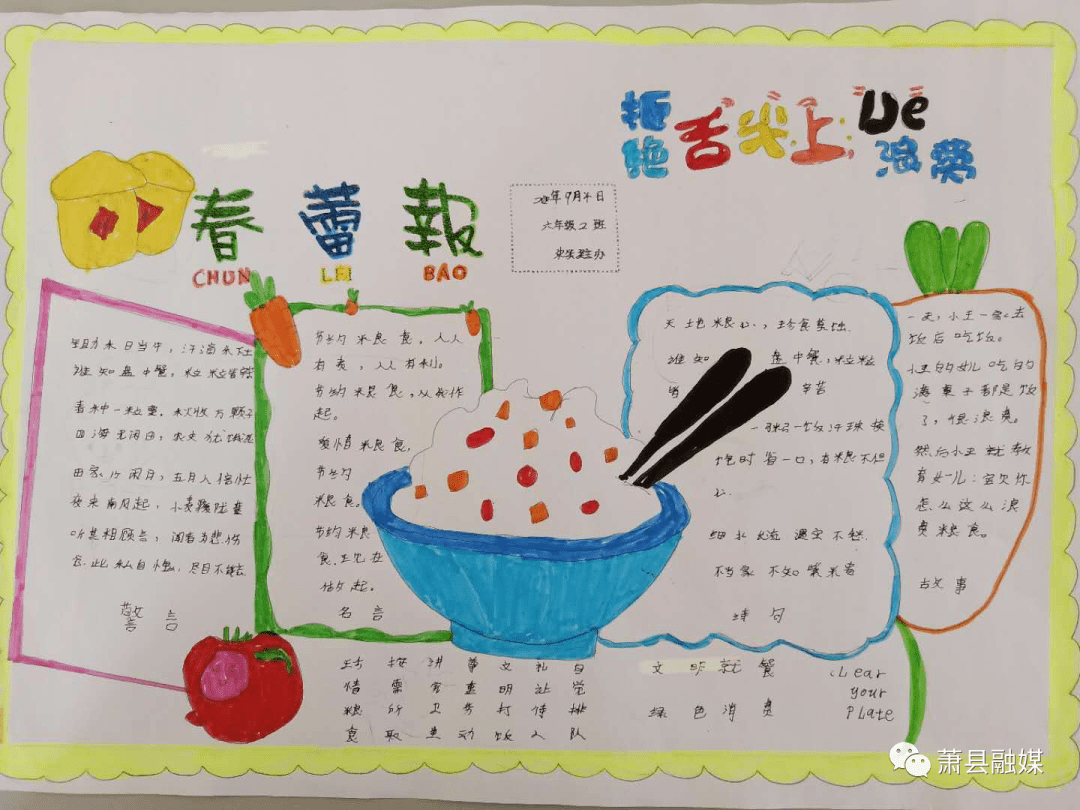 拒绝舌尖上De浪费
春蕾報
CHUN LEI BAO
年9月4日
六年级2班
办
锄禾日当午，汗滴禾下土
谁知盘中餐，粒粒皆
春种一粒粟，秋收万颗子
四海无闲田，农夫犹饿死
田家少闲月，五月人倍忙
夜来南风起，小麦覆陇黄
听其相顾言，闻者为悲伤
念此私自愧，尽日不能忘
警言
节约粮食，人人
有责，人人有利。
节约粮食，从我作
起。
爱惜粮食，
节约
粮食。
节约粮
食，
起。
名言
天地粮心，珍食莫蚀。
谁知 盘中餐，粒粒
皆 辛苦
饱时省一口，
细水 流
不当家不知
诗句
一天，小王一家去
饭店吃饭。
小王的女儿吃的
满桌子都是饭
了，很浪费。
然后小王就教
育女儿：宝贝你
怎么这么浪
费粮食。
故事
珍 按 讲 尊 文 礼 自
惜 需 究 重 明 让 觉
粮 所 卫 劳 打 待 排
食 取 生 动 饭 人 队
文明就餐
绿色消费
CLear
your
PLate
萧县融媒